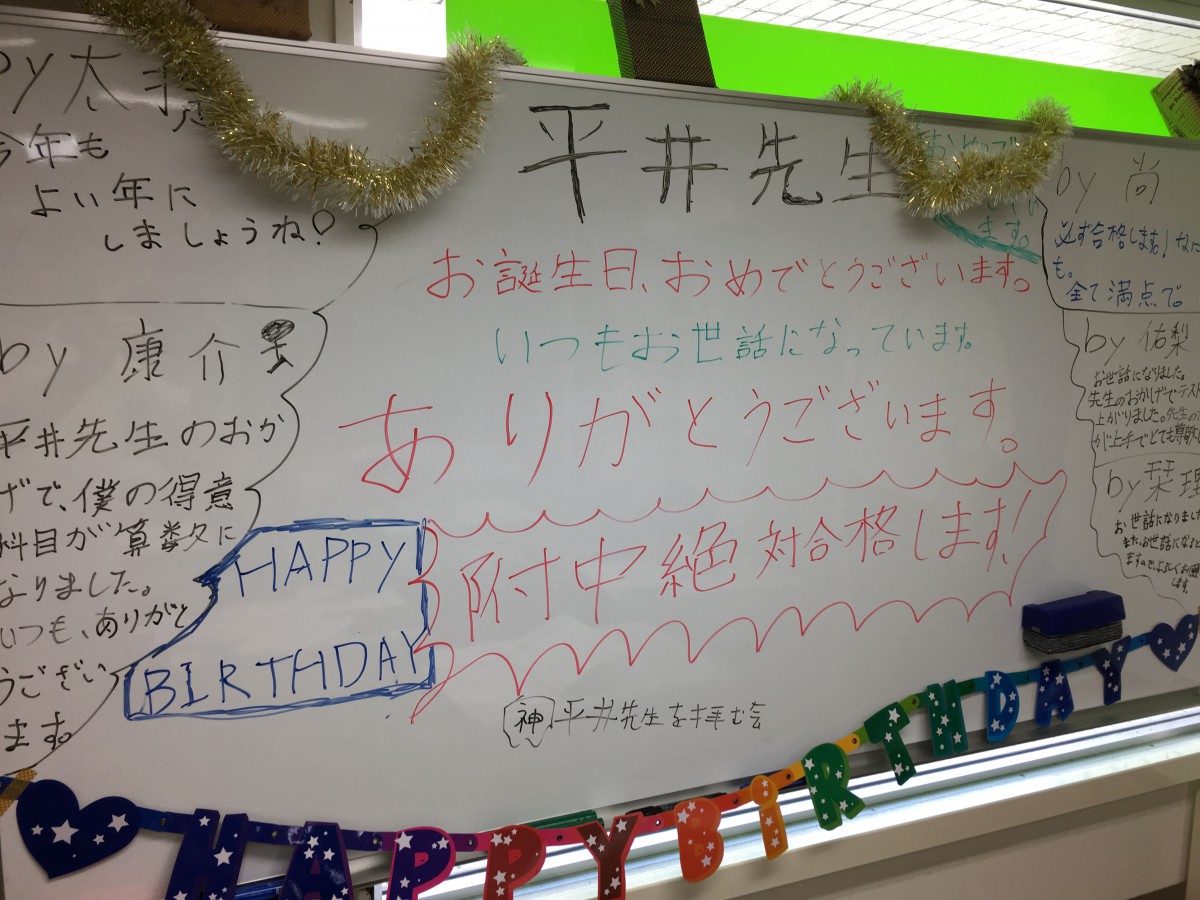 by 太
今年も
よい年に
しましょうね!
by 康介
平井先生のおか
げで、僕の得意
科目が算数に
なりました。
いつも、ありがと
うござい
ます。
平井先生
お誕生日、おめでとうございます。
いつもお世話になっています。
ありがとうございます。
附中絶対合格します!
HAPPY
BIRTHDAY
神 平井先生を拝む会
おめで
ます。
by 尚
必ず合格します!
も。
全て満点で。
by 佑梨
お世話になりました。
先生のおかげでテスト
上がりました。先生の
が上手でとても尊敬
by 栞理
お世話になりました
また、お世話になると
ますので、よろしくお願
します。
HAPPY BiRTHDAY